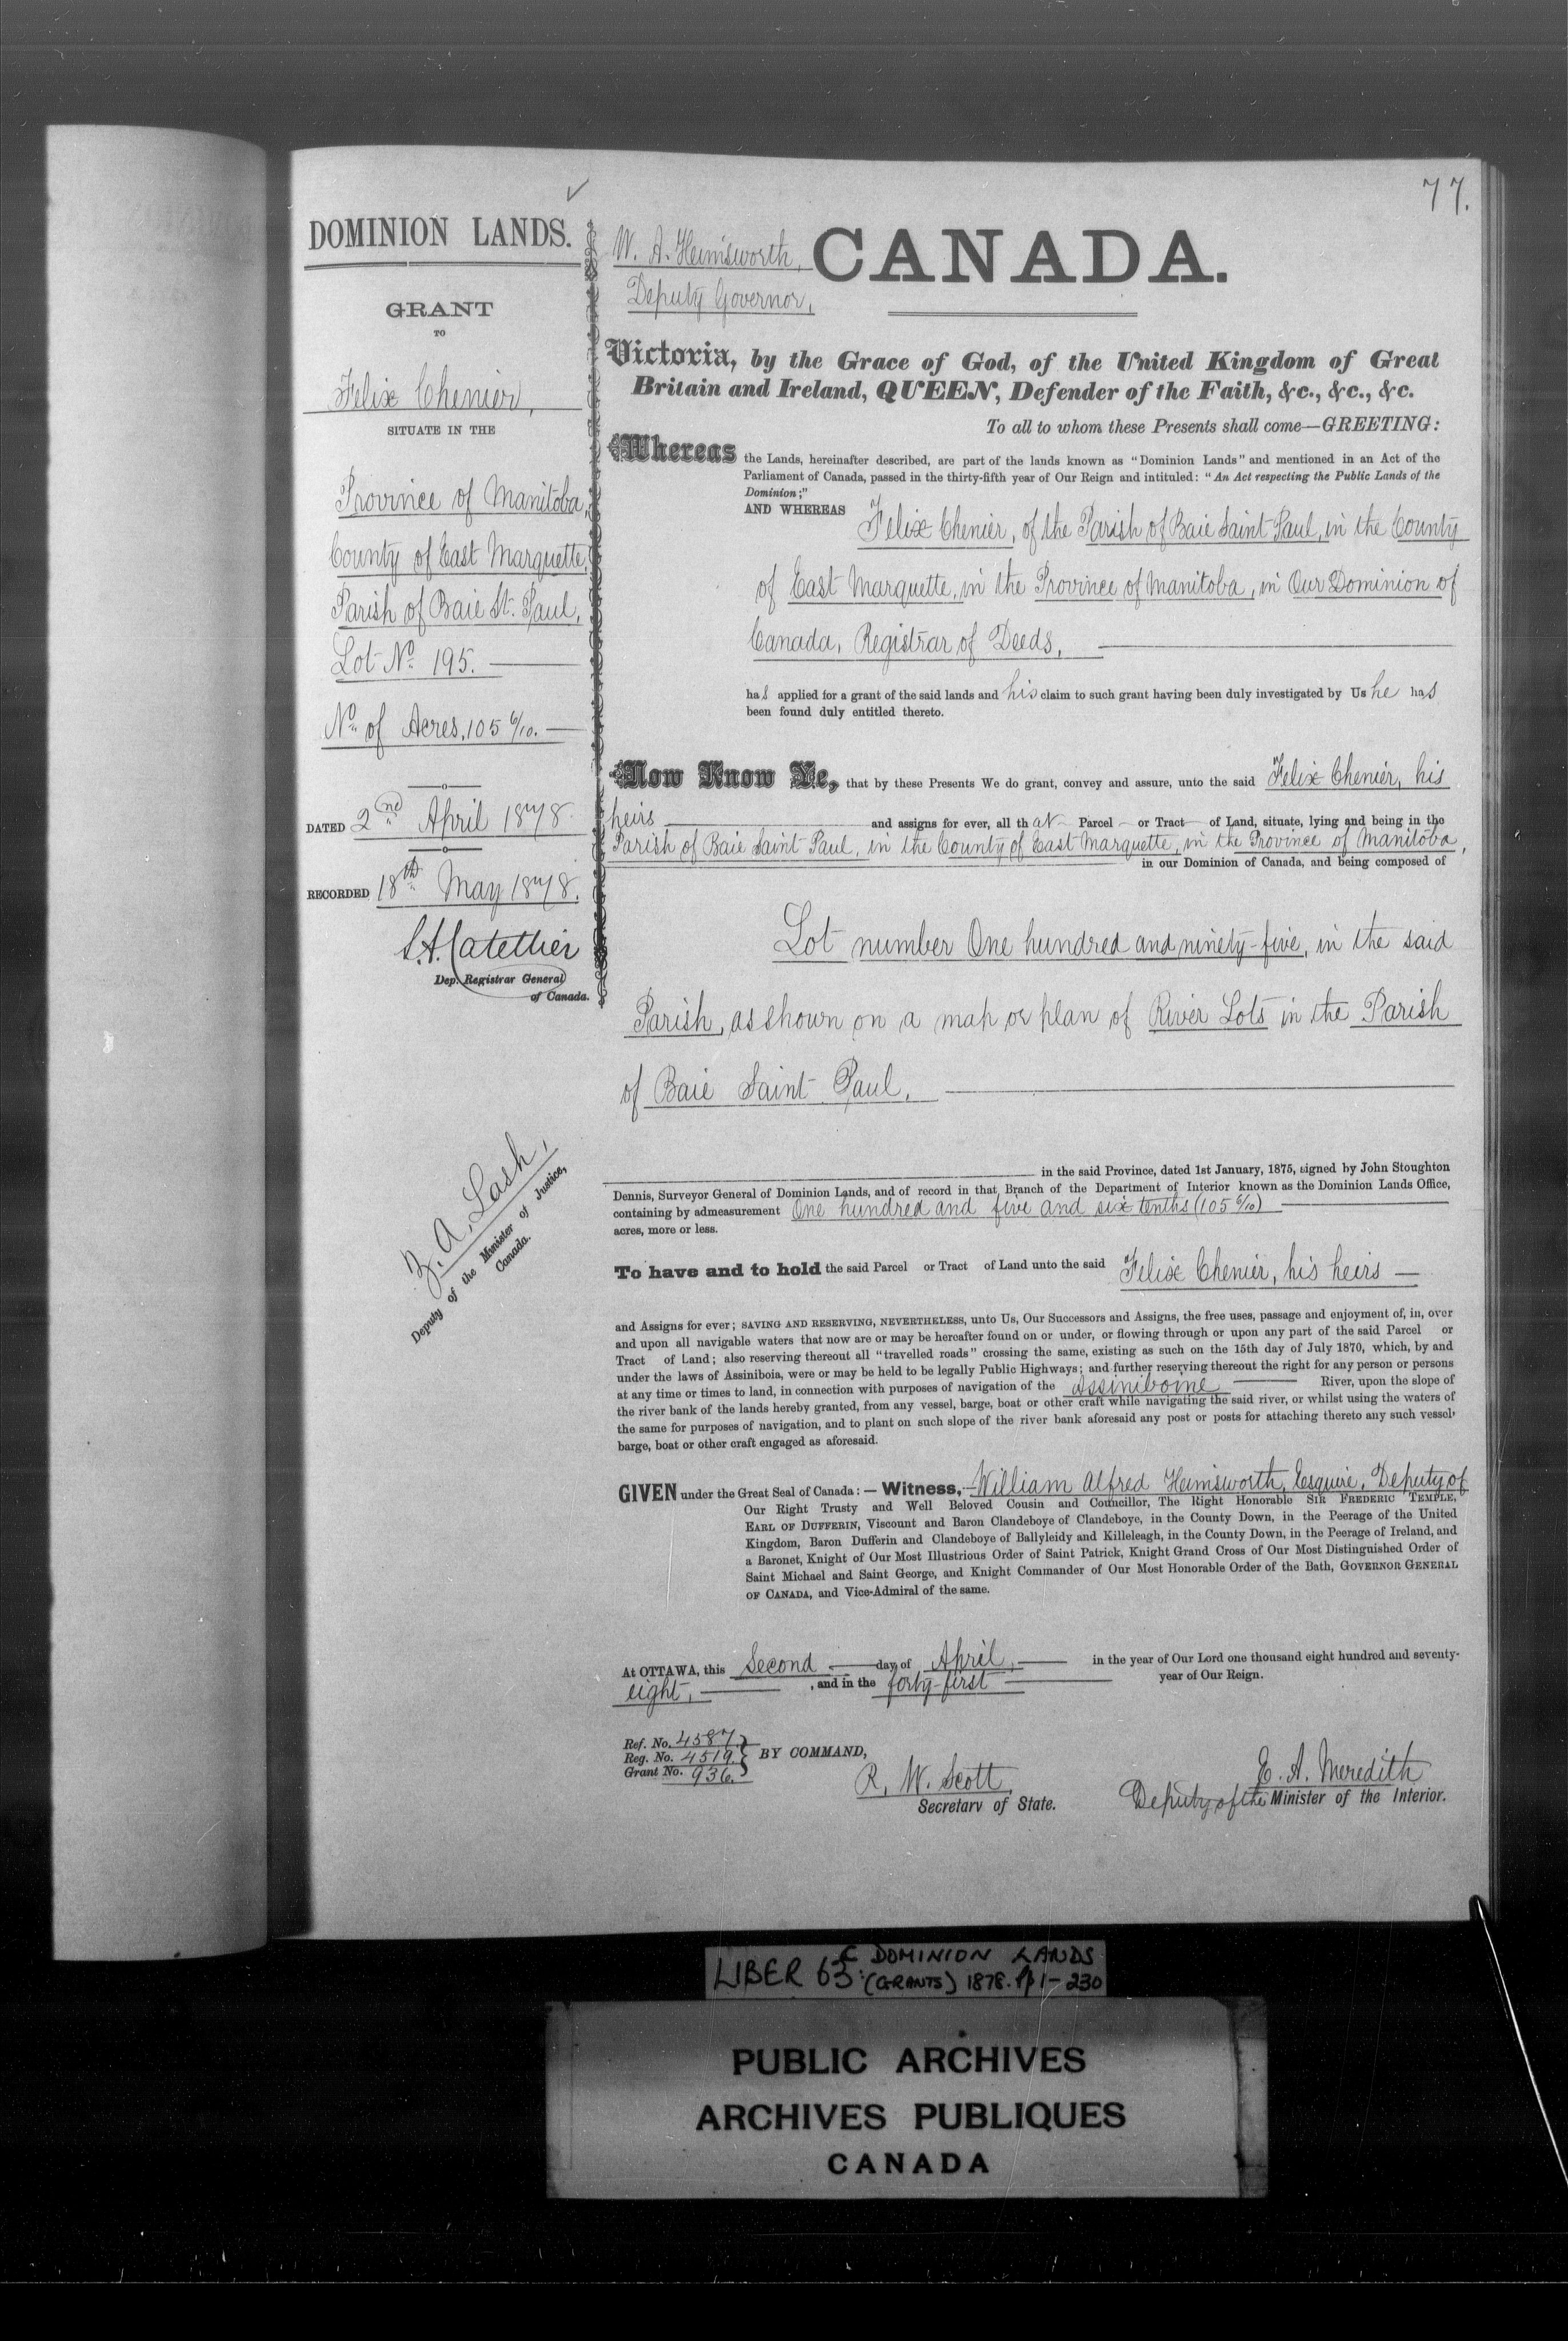 77.
DOMINION LANDS.
GRANT
TO
Felix Chenier,
SITUATE IN THE
Province of Manitoba,
County of East Marquette,
Parish of Baie St. Paul,
Lot No. 195.
No. of Acres, 105 6/10.
DATED 2nd April 1878
RECORDED 18th May 1878.
L.A. Catellier
Dep. Registrar General
of Canada.
Z. A. Lash,
Deputy of the Minister of Justice,
Canada.
W. A. Himsworth,
Deputy Governor,
CANADA.
Victoria, by the Grace of God, of the United Kingdom of Great
Britain and Ireland, QUEEN, Defender of the Faith, &c., &c., &c.
To all to whom these Presents shall come—GREETING:
Whereas the Lands, hereinafter described, are part of the lands known as "Dominion Lands" and mentioned in an Act of the
Parliament of Canada, passed in the thirty-fifth year of Our Reign and intituled: "An Act respecting the Public Lands of the
Dominion;"
AND WHEREAS Felix Chenier, of the Parish of Baie Saint Paul, in the County
of East Marquette, in the Province of Manitoba, in Our Dominion of
Canada, Registrar of Deeds,
has applied for a grant of the said lands and his claim to such grant having been duly investigated by Us he has
been found duly entitled thereto.
Now Know Ye, that by these Presents We do grant, convey and assure, unto the said Felix Chenier, his
heirs and assigns for ever, all that Parcel or Tract of Land, situate, lying and being in the
Parish of Baie Saint Paul, in the County of East Marquette, in the Province of Manitoba,
in our Dominion of Canada, and being composed of
Lot number One hundred and ninety-five, in the said
Parish, as shown on a map or plan of River Lots in the Parish
of Baie Saint Paul,
in the said Province, dated 1st January, 1875, signed by John Stoughton
Dennis, Surveyor General of Dominion Lands, and of record in that Branch of the Department of Interior known as the Dominion Lands Office,
containing by admeasurement One hundred and five and six tenths (105 6/10)
acres, more or less.
To have and to hold the said Parcel or Tract of Land unto the said Felix Chenier, his heirs
and Assigns for ever; SAVING AND RESERVING, NEVERTHELESS, unto Us, Our Successors and Assigns, the free uses, passage and enjoyment of, in, over
and upon all navigable waters that now are or may be hereafter found on or under, or flowing through or upon any part of the said Parcel or
Tract of Land; also reserving thereout all "travelled roads" crossing the same, existing as such on the 15th day of July 1870, which, by and
under the laws of Assiniboia, were or may be held to be legally Public Highways; and further reserving thereout the right for any person or persons
at any time or times to land, in connection with purposes of navigation of the Assiniboine River, upon the slope of
the river bank of the lands hereby granted, from any vessel, barge, boat or other craft while navigating the said river, or whilst using the waters of
the same for purposes of navigation, and to plant on such slope of the river bank aforesaid any post or posts for attaching thereto any such vessel,
barge, boat or other craft engaged as aforesaid.
GIVEN under the Great Seal of Canada:—Witness, William Alfred Himsworth, Esquire, Deputy of
Our Right Trusty and Well Beloved Cousin and Councillor, The Right Honorable SIR FREDERIC TEMPLE,
EARL OF DUFFERIN, Viscount and Baron Clandeboye of Clandeboye, in the County Down, in the Peerage of the United
Kingdom, Baron Dufferin and Clandeboye of Ballyleidy and Killeleagh, in the County Down, in the Peerage of Ireland, and
a Baronet, Knight of Our Most Illustrious Order of Saint Patrick, Knight Grand Cross of Our Most Distinguished Order of
Saint Michael and Saint George, and Knight Commander of Our Most Honorable Order of the Bath, GOVERNOR GENERAL
OF CANADA, and Vice-Admiral of the same.
At OTTAWA, this Second day of April, in the year of Our Lord one thousand eight hundred and seventy-
eight, , and in the forty-first year of Our Reign.
Ref. No. 4587.
Reg. No. 4519.
Grant No. 936.
BY COMMAND,
R. W. Scott
Secretary of State.
E. A. Meredith
Deputy of the Minister of the Interior.
LIBER 63C: DOMINION LANDS
(GRANTS) 1878. pp 1-230
PUBLIC ARCHIVES
ARCHIVES PUBLIQUES
CANADA